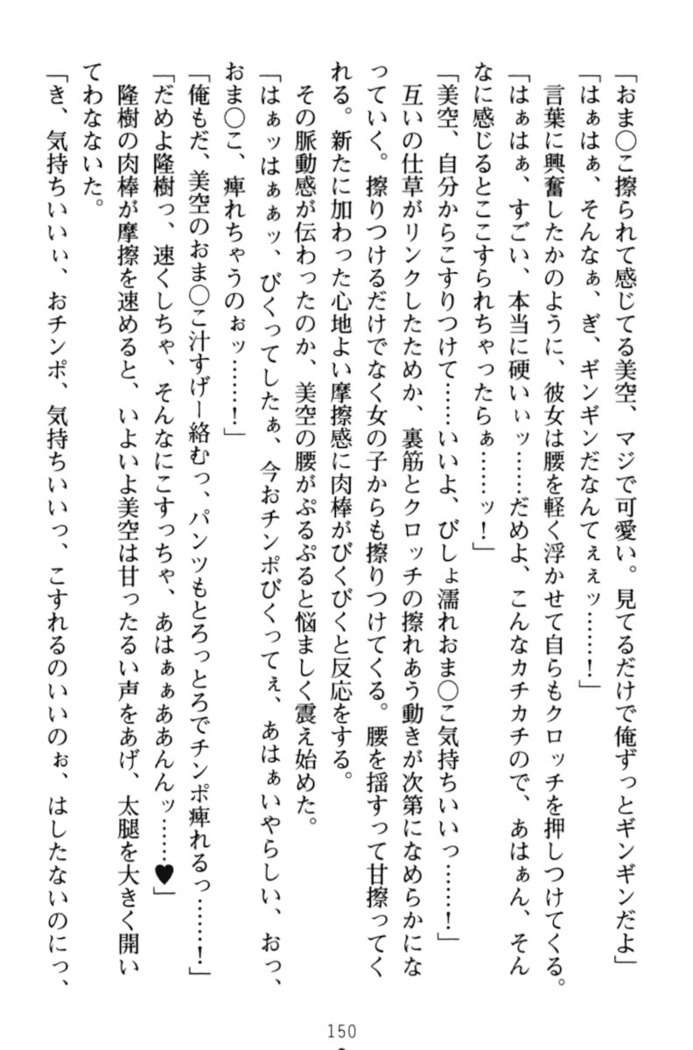 「おま〇こ擦られて感じてる美空、マジで可愛い。見てるだけで俺ずっとギンギンだよ」
「はぁはぁ、そんなぁ、ぎ、ギンギンだなんてぇぇッ……！」
言葉に興奮したかのように、彼女は腰を軽く浮かせて自らもクロッチを押しつけてくる。
「はぁはぁ、すごい、本当に硬いぃッ……だめよ、こんなカチカチので、あはぁん、そん
なに感じるとここすられちゃったらぁ……ッ！」
「美空、自分からこすりつけて……いいよ、びしょ濡れおま〇こ気持ちいいっ……！」
互いの仕草がリンクしたためか、裏筋とクロッチの擦れあう動きが次第になめらかにな
っていく。擦りつけるだけでなく女の子からも擦りつけてくる。腰を揺すって甘擦ってく
れる。新たに加わった心地よい摩擦感に肉棒がびくびくと反応をする。
その脈動感が伝わったのか、美空の腰がぷるぷると悩ましく震え始めた。
「はぁッはぁぁッ、びくってしたぁ、今おチンポびくってぇ、あはぁいやらしい、おっ、
おま〇こ、痺れちゃうのぉッ……！」
「俺もだ、美空のおま〇こ汁すげー絡むっ、パンツもとろっとろでチンポ痺れるっ……！」
「だめよ隆樹っ、速くしちゃ、そんなにこすっちゃ、あはぁぁああんんッ……♥」
隆樹の肉棒が摩擦を速めると、いよいよ美空は甘ったるい声をあげ、太腿を大きく開い
てわなないた。
「き、気持ちいいぃ、おチンポ、気持ちいいっ、こすれるのいいのぉ、はしたないのにっ、
150